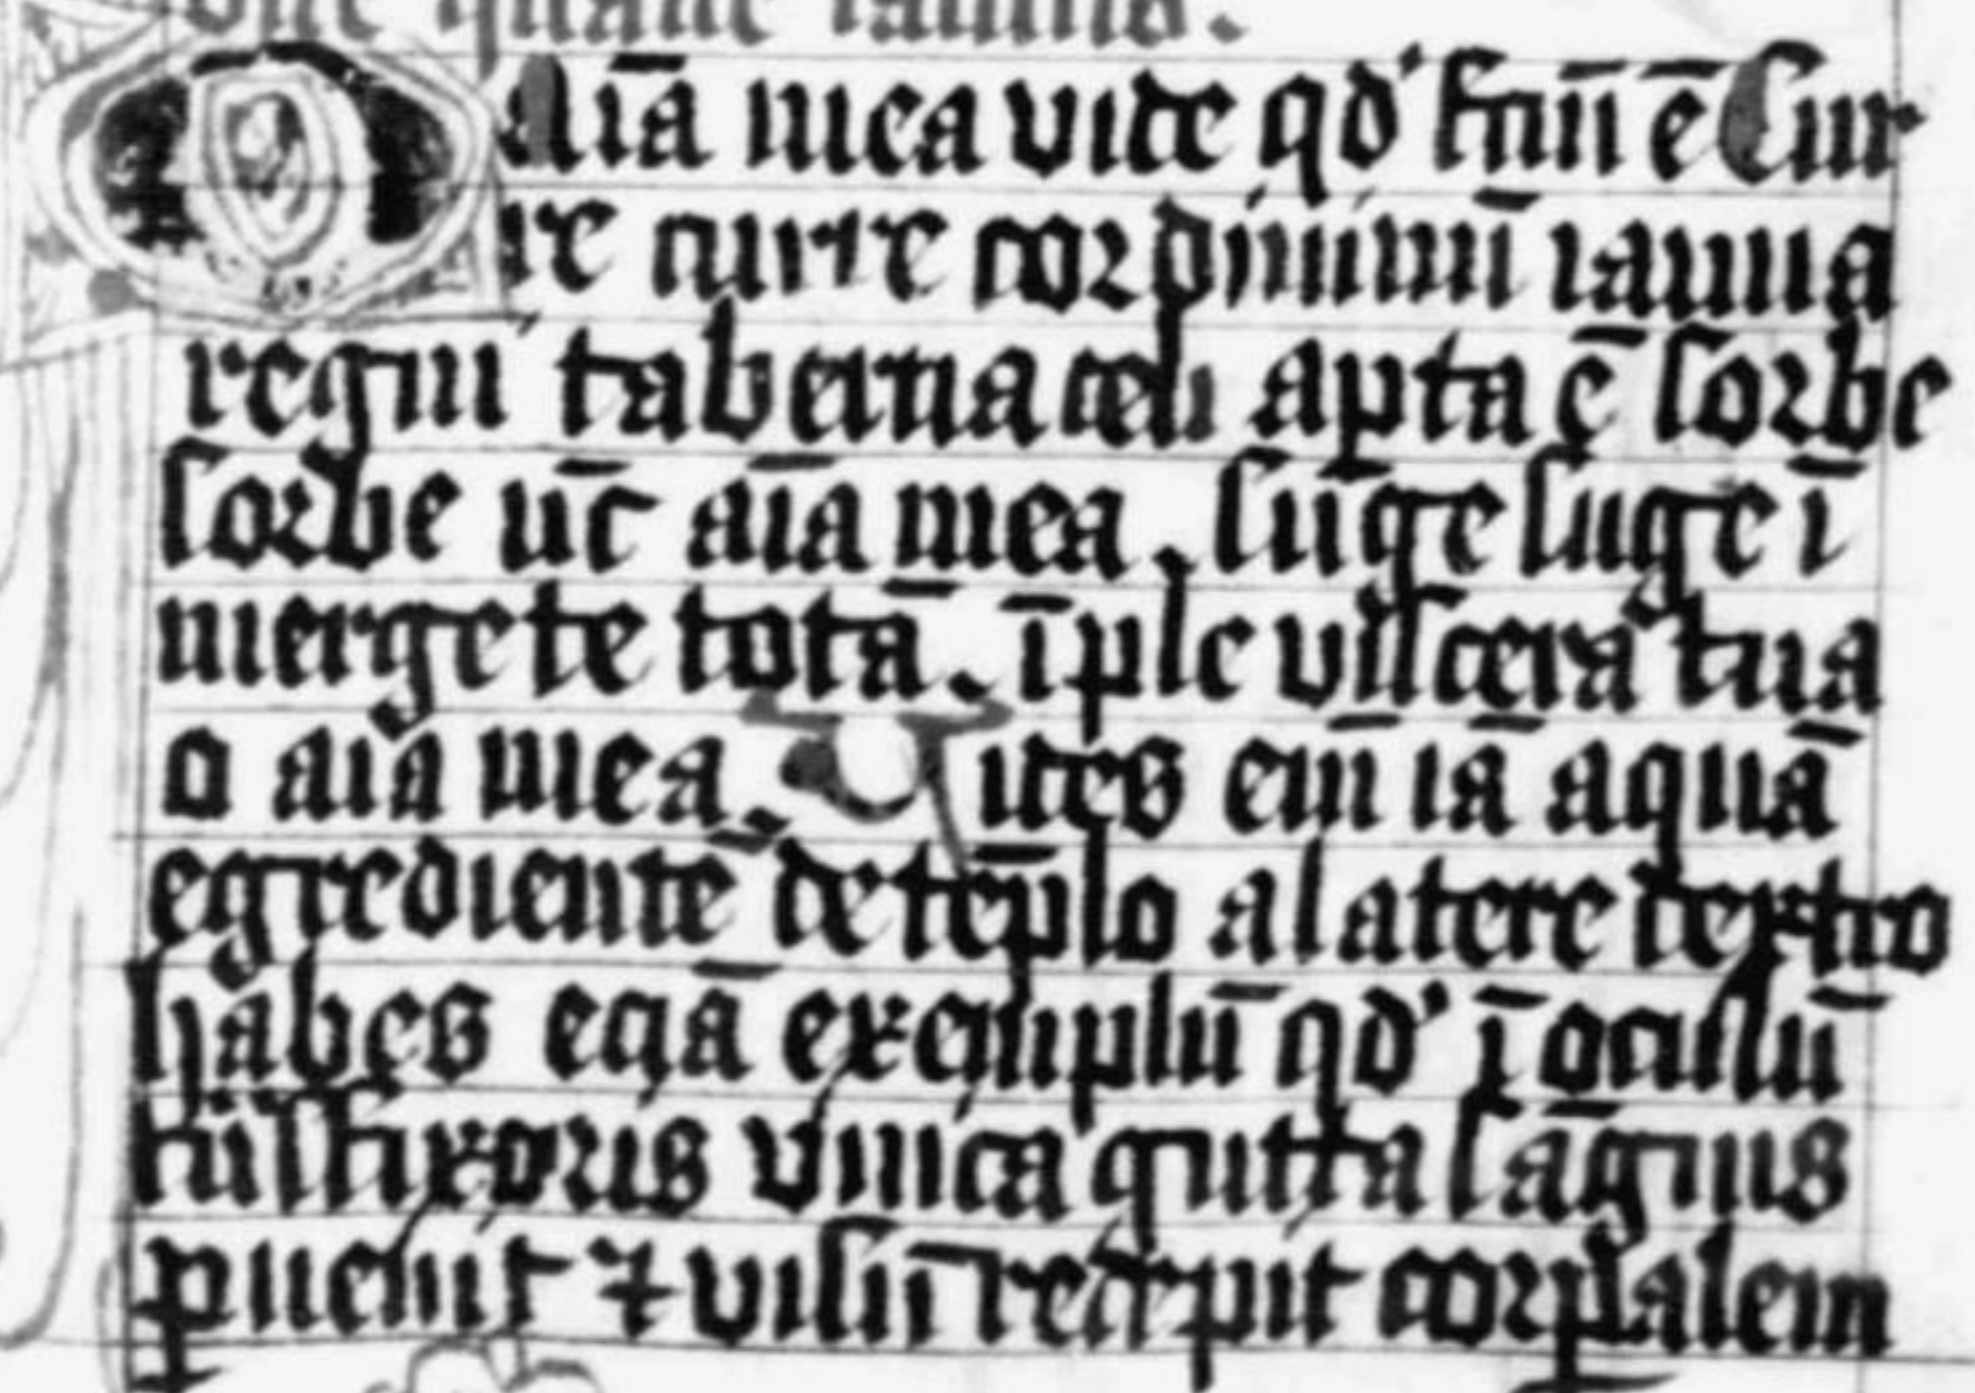 O Aīa mea vide qd' fcm̄ ē Cur
re curre cor diuinū ianua
regni tabernaculi apta ē sorbe
sorbe nūc aīa mea . suge suge ī
merge te totā . īple viscera tua
o aīa mea . Vides eīm iā aquā
egredientē de tēplo a latere dextro
habes eciā exemplū qd' ī oculū
vnica gutta sāguis
puenit ⁊ visū recepit corpalem